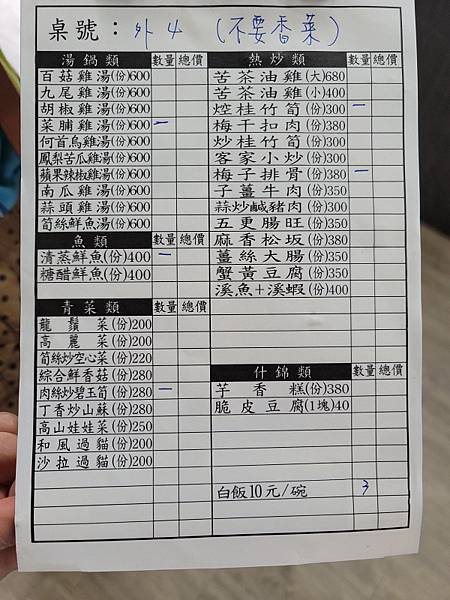 桌號：外4 (不要香菜)
湯鍋類 數量 總價
百菇雞湯(份)600
九尾雞湯(份)600
胡椒雞湯(份)600
菜脯雞湯(份)600 一
何首烏雞湯(份)600
鳳梨苦瓜雞湯(份)600
蘋果辣椒雞湯(份)600
南瓜雞湯(份)600
蒜頭雞湯(份)600
筍絲鮮魚湯(份)600
魚類 數量 總價
清蒸鮮魚(份)400 一
糖醋鮮魚(份)400
青菜類 數量 總價
龍鬚菜(份)200
高麗菜(份)200
筍絲炒空心菜(份)220
綜合鮮香菇(份)280
肉絲炒碧玉筍(份)280 一
丁香炒山蘇(份)280
高山娃娃菜(份)250
和風過貓(份)200
沙拉過貓(份)200
熱炒類 數量 總價
苦茶油雞(大)680
苦茶油雞(小)400
焢桂竹筍(份)300 一
梅干扣肉(份)380
炒桂竹筍(份)300
客家小炒(份)300
梅子排骨(份)380 一
子薑牛肉(份)350
蒜炒鹹豬肉(份)300
五更腸旺(份)350
麻香松坂(份)380
薑絲大腸(份)350
蟹黃豆腐(份)350
溪魚+溪蝦(份)400
什錦類 數量 總價
芋香糕(份)380
脆皮豆腐(1塊)40
白飯10元/碗 3